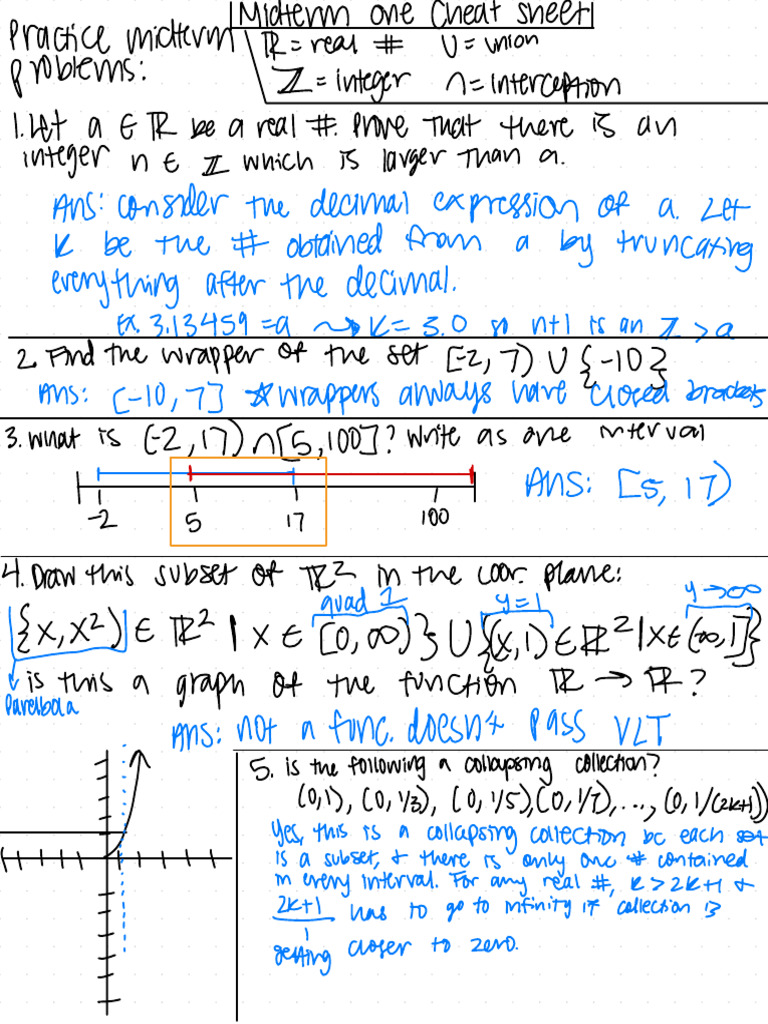 Midterm one Cheat sheet
Practice midterm problems:
ℝ = real # ∪ = union
ℤ = integer ∩ = interception
1. Let a ∈ ℝ be a real #. Prove that there is an
integer n ∈ ℤ which is larger than a.
Ans: consider the decimal expression of a. Let
k be the # obtained from a by truncating
everything after the decimal.
Ex. 3.13459 = a ⇝ k = 3.0 so n+1 is an ℤ > a
2. Find the wrapper of the set [-2, 7) ∪ {-10}
Ans: [-10, 7] *wrappers always have closed brackets
3. What is (-2, 17) ∩ [5, 100]? Write as one interval
-2 5 17 100
Ans: [5, 17)
4. Draw this subset of ℝ² in the coor. plane:
quad 1 y=1 y→∞
{x, x²) ∈ ℝ² | x ∈ [0, ∞)} ∪ {(x, 1) ∈ ℝ² | x ∈ (∞, 1]}
is this a graph of the function ℝ → ℝ?
Parelbola
Ans: not a func. doesn't pass VLT
5. is the following a collapsing collection?
(0,1), (0, 1/3), (0, 1/5), (0, 1/7), ..., (0, 1/(2k+1))
Yes, this is a collapsing collection bc each set
is a subset, & there is only one # contained
in every interval. For any real #, k > 2k+1 &
2k+1 has to go to infinity if collection is
1
getting closer to zero.